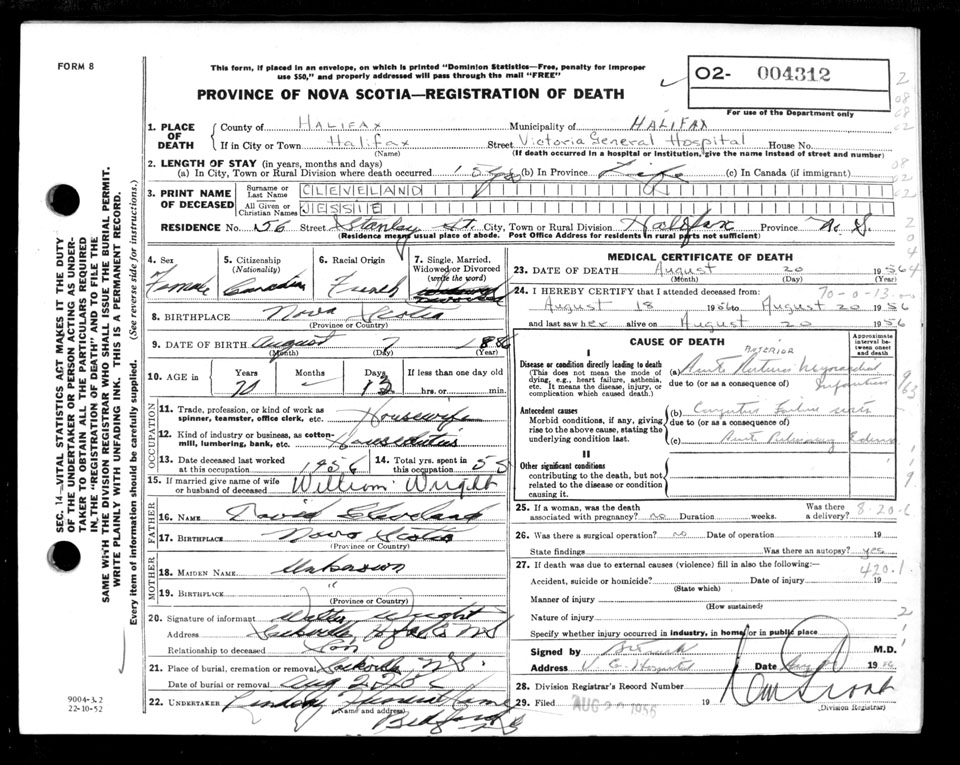 FORM 8
This form, if placed in an envelope, on which is printed "Dominion Statistics—Free, penalty for improper
use $50," and properly addressed will pass through the mail "FREE"
PROVINCE OF NOVA SCOTIA—REGISTRATION OF DEATH
O2- 004312
For use of the Department only
1. PLACE OF DEATH
County of HALIFAX Municipality of HALIFAX
If in City or Town Halifax Street Victoria General Hospital House No.
(Name) (If death occurred in a hospital or institution, give the name instead of street and number)
2. LENGTH OF STAY (in years, months and days)
(a) In City, Town or Rural Division where death occurred (b) In Province Life (c) In Canada (if immigrant)
3. PRINT NAME OF DECEASED
Surname or Last Name CLEVELAND
All Given or Christian Names JESSIE
RESIDENCE No. 56 Street Stanley St. City, Town or Rural Division Halifax Province N.S.
(Residence means usual place of abode. Post Office Address for residents in rural parts not sufficient)
4. Sex
Female
5. Citizenship
(Nationality)
Canadian
6. Racial Origin
French
7. Single, Married, Widowed or Divorced
(write the word)
8. BIRTHPLACE Nova Scotia
(Province or Country)
9. DATE OF BIRTH August 7 1886
(Month) (Day) (Year)
10. AGE in
Years Months Days If less than one day
70 - 13 hrs. or min.
OCCUPATION
11. Trade, profession, or kind of work as
spinner, teamster, office clerk, etc. Housewife
12. Kind of industry or business, as cotton-
mill, lumbering, bank, etc.
13. Date deceased last worked
at this occupation 1956
14. Total yrs. spent in
this occupation 55
15. If married give name of wife
or husband of deceased William Wright
FATHER
16. NAME David Cleveland
17. BIRTHPLACE Nova Scotia
(Province or Country)
MOTHER
18. MAIDEN NAME Unknown
19. BIRTHPLACE "
(Province or Country)
20. Signature of informant Walter Wright
Address Sackville
Relationship to deceased Son
21. Place of burial, cremation or removal Sackville N.S.
Date of burial or removal Aug 22
22. UNDERTAKER Funeral Home
(Name and address) Bedford
MEDICAL CERTIFICATE OF DEATH
23. DATE OF DEATH August 20 1956
(Month) (Day)
70-0-13
24. I HEREBY CERTIFY that I attended deceased from:
August 18 1956 to August 20 1956
and last saw her alive on August 20 1956
CAUSE OF DEATH
Approximate interval between onset and death
I
Disease or condition directly leading to death
(This does not mean the mode of
dying, e.g., heart failure, asthenia,
etc. It means the disease, injury, or
complication which caused death.)
(a) Myocardial
Infarction
due to (or as a consequence of)
Antecedent causes
Morbid conditions, if any, giving
rise to the above cause, stating the
underlying condition last.
(b) Failure
due to (or as a consequence of)
(c) Acute Pulmonary Edema
II
Other significant conditions
contributing to the death, but not
related to the disease or condition
causing it.
25. If a woman, was the death
associated with pregnancy? no Duration weeks.
Was there
a delivery?
8-20-6
26. Was there a surgical operation? no Date of operation 19
State findings Was there an autopsy? yes
27. If death was due to external causes (violence) fill in also the following:
420.1
Accident, suicide or homicide? Date of injury 19
(State which)
Manner of injury
(How sustained)
Nature of injury
Specify whether injury occurred in industry, in home, or in public place
Signed by M.D.
Address V. G. Hospital Date 1956
28. Division Registrar's Record Number
29. Filed AUG 1956 19
(Division Registrar)
SEC. 14—VITAL STATISTICS ACT MAKES IT THE DUTY
OF THE UNDERTAKER OR PERSON ACTING AS UNDER-
TAKER TO OBTAIN ALL THE PARTICULARS REQUIRED
IN THE "REGISTRATION OF DEATH" AND TO FILE THE
SAME WITH THE DIVISION REGISTRAR WHO SHALL ISSUE THE BURIAL PERMIT.
WRITE PLAINLY WITH UNFADING INK. THIS IS A PERMANENT RECORD.
Every item of information should be carefully supplied. (See reverse side for instructions.)
22-10-52